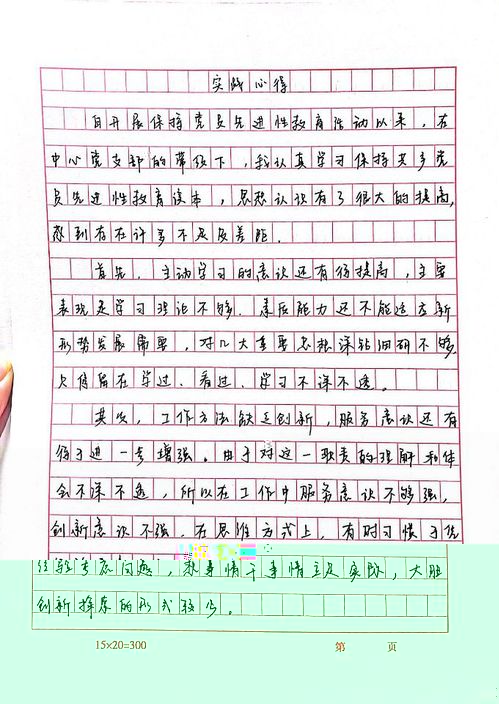 实践心得
自开展保持党员先进性教育活动以来，在
中心党支部的带领下，我认真学习保持共产党
员先进性教育读本，思想认识有了很大的提高，
感到存在许多不足及差距。
首先，主动学习的意识还有待提高，主要
表现是学习理论不够，素质能力还不能适应新
形势发展需要，对几大重要思想深钻细研不够
欠停留在学过、看过、学习不深不透。
其次，工作方法缺乏创新，服务意识还有
待于进一步增强。由于对这一职责的理解和体
会不深不透，所以在工作中服务意识不够强，
创新意识不强，在思维方式上，有时习惯于凭
经验考虑问题，想事情干事情立足实际，大胆
创新探索的形式较少。
15×20=300
第 页